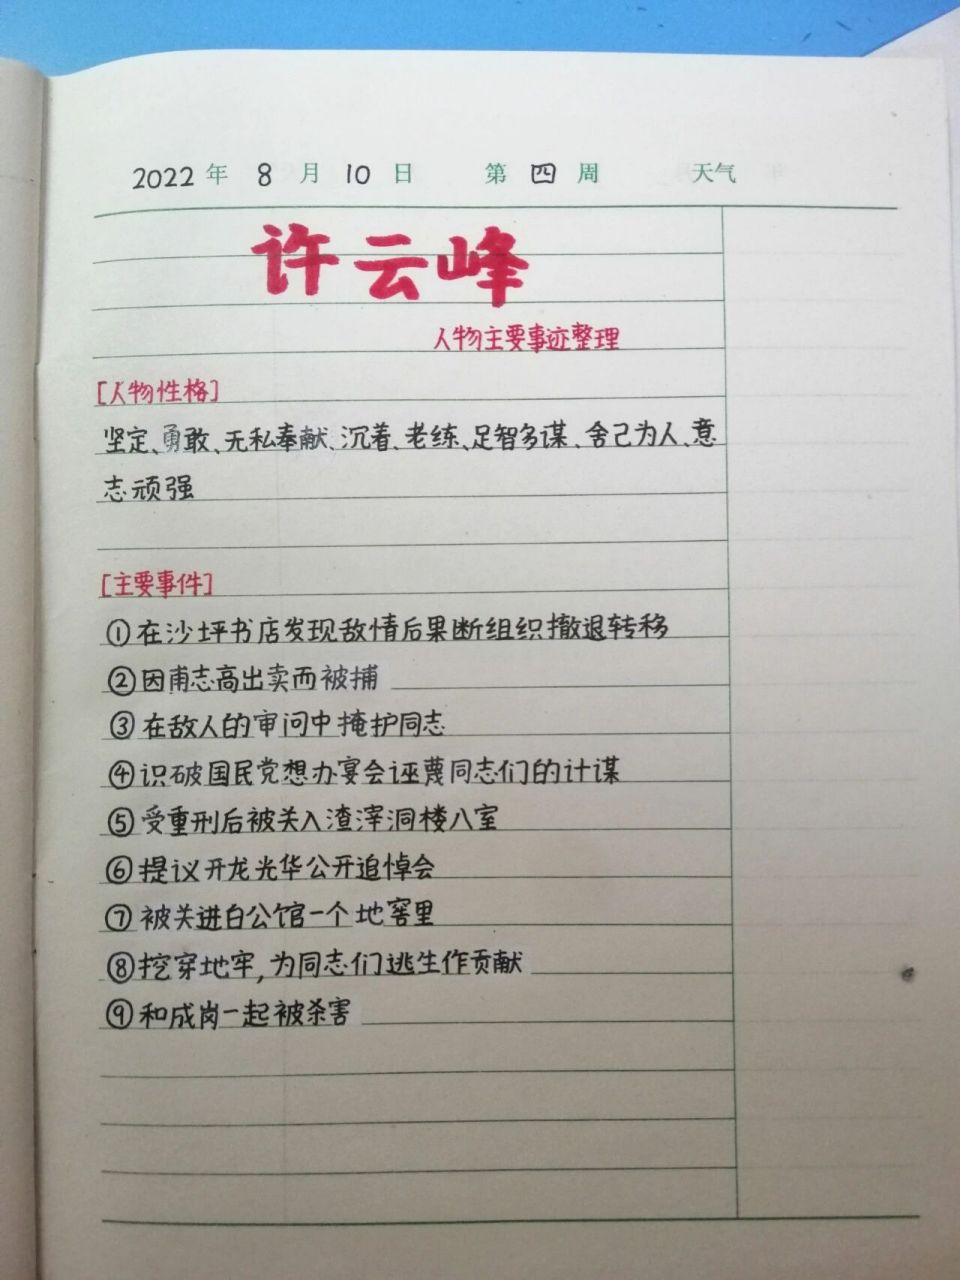 2022年 8月 10日 第四周 天气
许云峰
人物主要事迹整理
[人物性格]
坚定、勇敢、无私奉献、沉着、老练、足智多谋、舍己为人、意
志顽强
[主要事件]
①在沙坪书店发现敌情后果断组织撤退转移
②因甫志高出卖而被捕
③在敌人的审问中掩护同志
④识破国民党想办宴会诬蔑同志们的计谋
⑤受重刑后被关入渣滓洞楼八室
⑥提议开龙光华公开追悼会
⑦被关进白公馆一个地窖里
⑧挖穿地牢,为同志们逃生作贡献
⑨和成岗一起被杀害